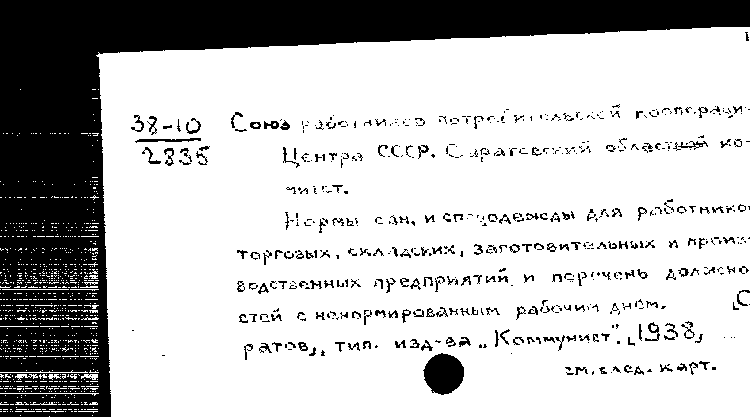 38-10
2835
Союз работников потребительской кооперации
Центра СССР. Саратовский областной ко-
митет.
Нормы сан. и спецодежды для работников
торговых, складских, заготовительных и произ-
водственных предприятий и перечень должно-
стей с ненормированным рабочим днем. [С
ратов], тип. изд-ва „Коммунист". [1938]
см. след. карт.